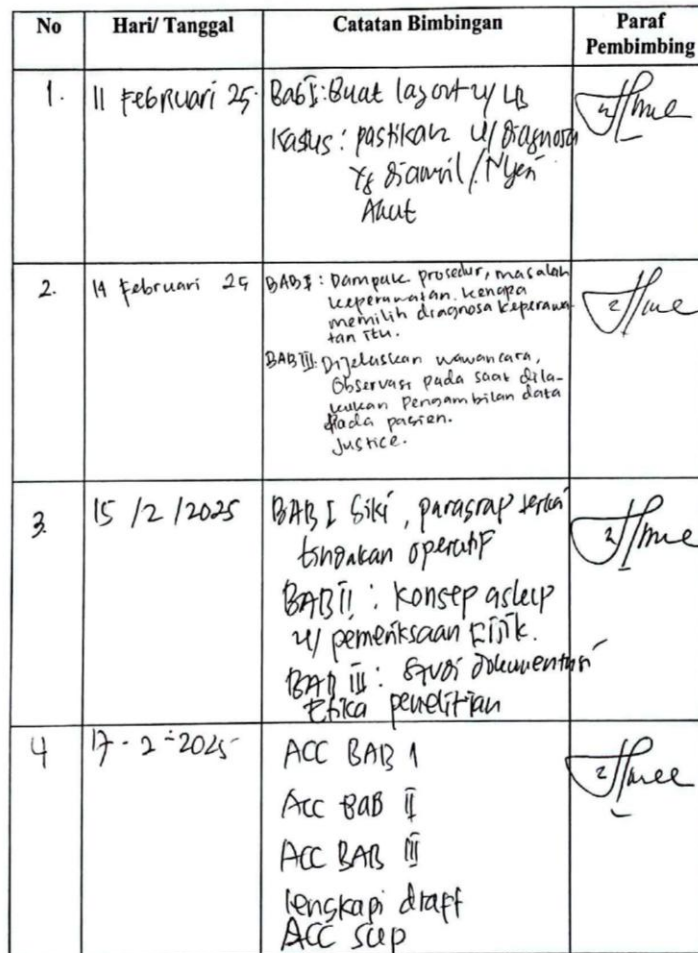 No Hari/ Tanggal Catatan Bimbingan Paraf
Pembimbing
1. 11 Februari 25 Bab I: Buat layout u/ LB
Kasus: pastikan u/ diagnosa
yg diambil / Nyeri
Akut
2. 14 Februari 25 BAB I: Dampak prosedur, masalah
keperawatan. kenapa
memilih diagnosa keperawa-
tan itu.
BAB III: Dijelaskan wawancara,
Observasi pada saat dila-
kukan Pengambilan data
pada pasien.
Justice.
3. 15 /2 /2025 BAB I Siki, paragrap
tindakan operatif
BAB II: Konsep askep
u/ pemeriksaan Fisik.
BAB III: Studi dokumentasi
Etika penelitian
4 17-2-2025 ACC BAB 1
Acc BAB II
ACC BAB III
lengkapi draft
ACC